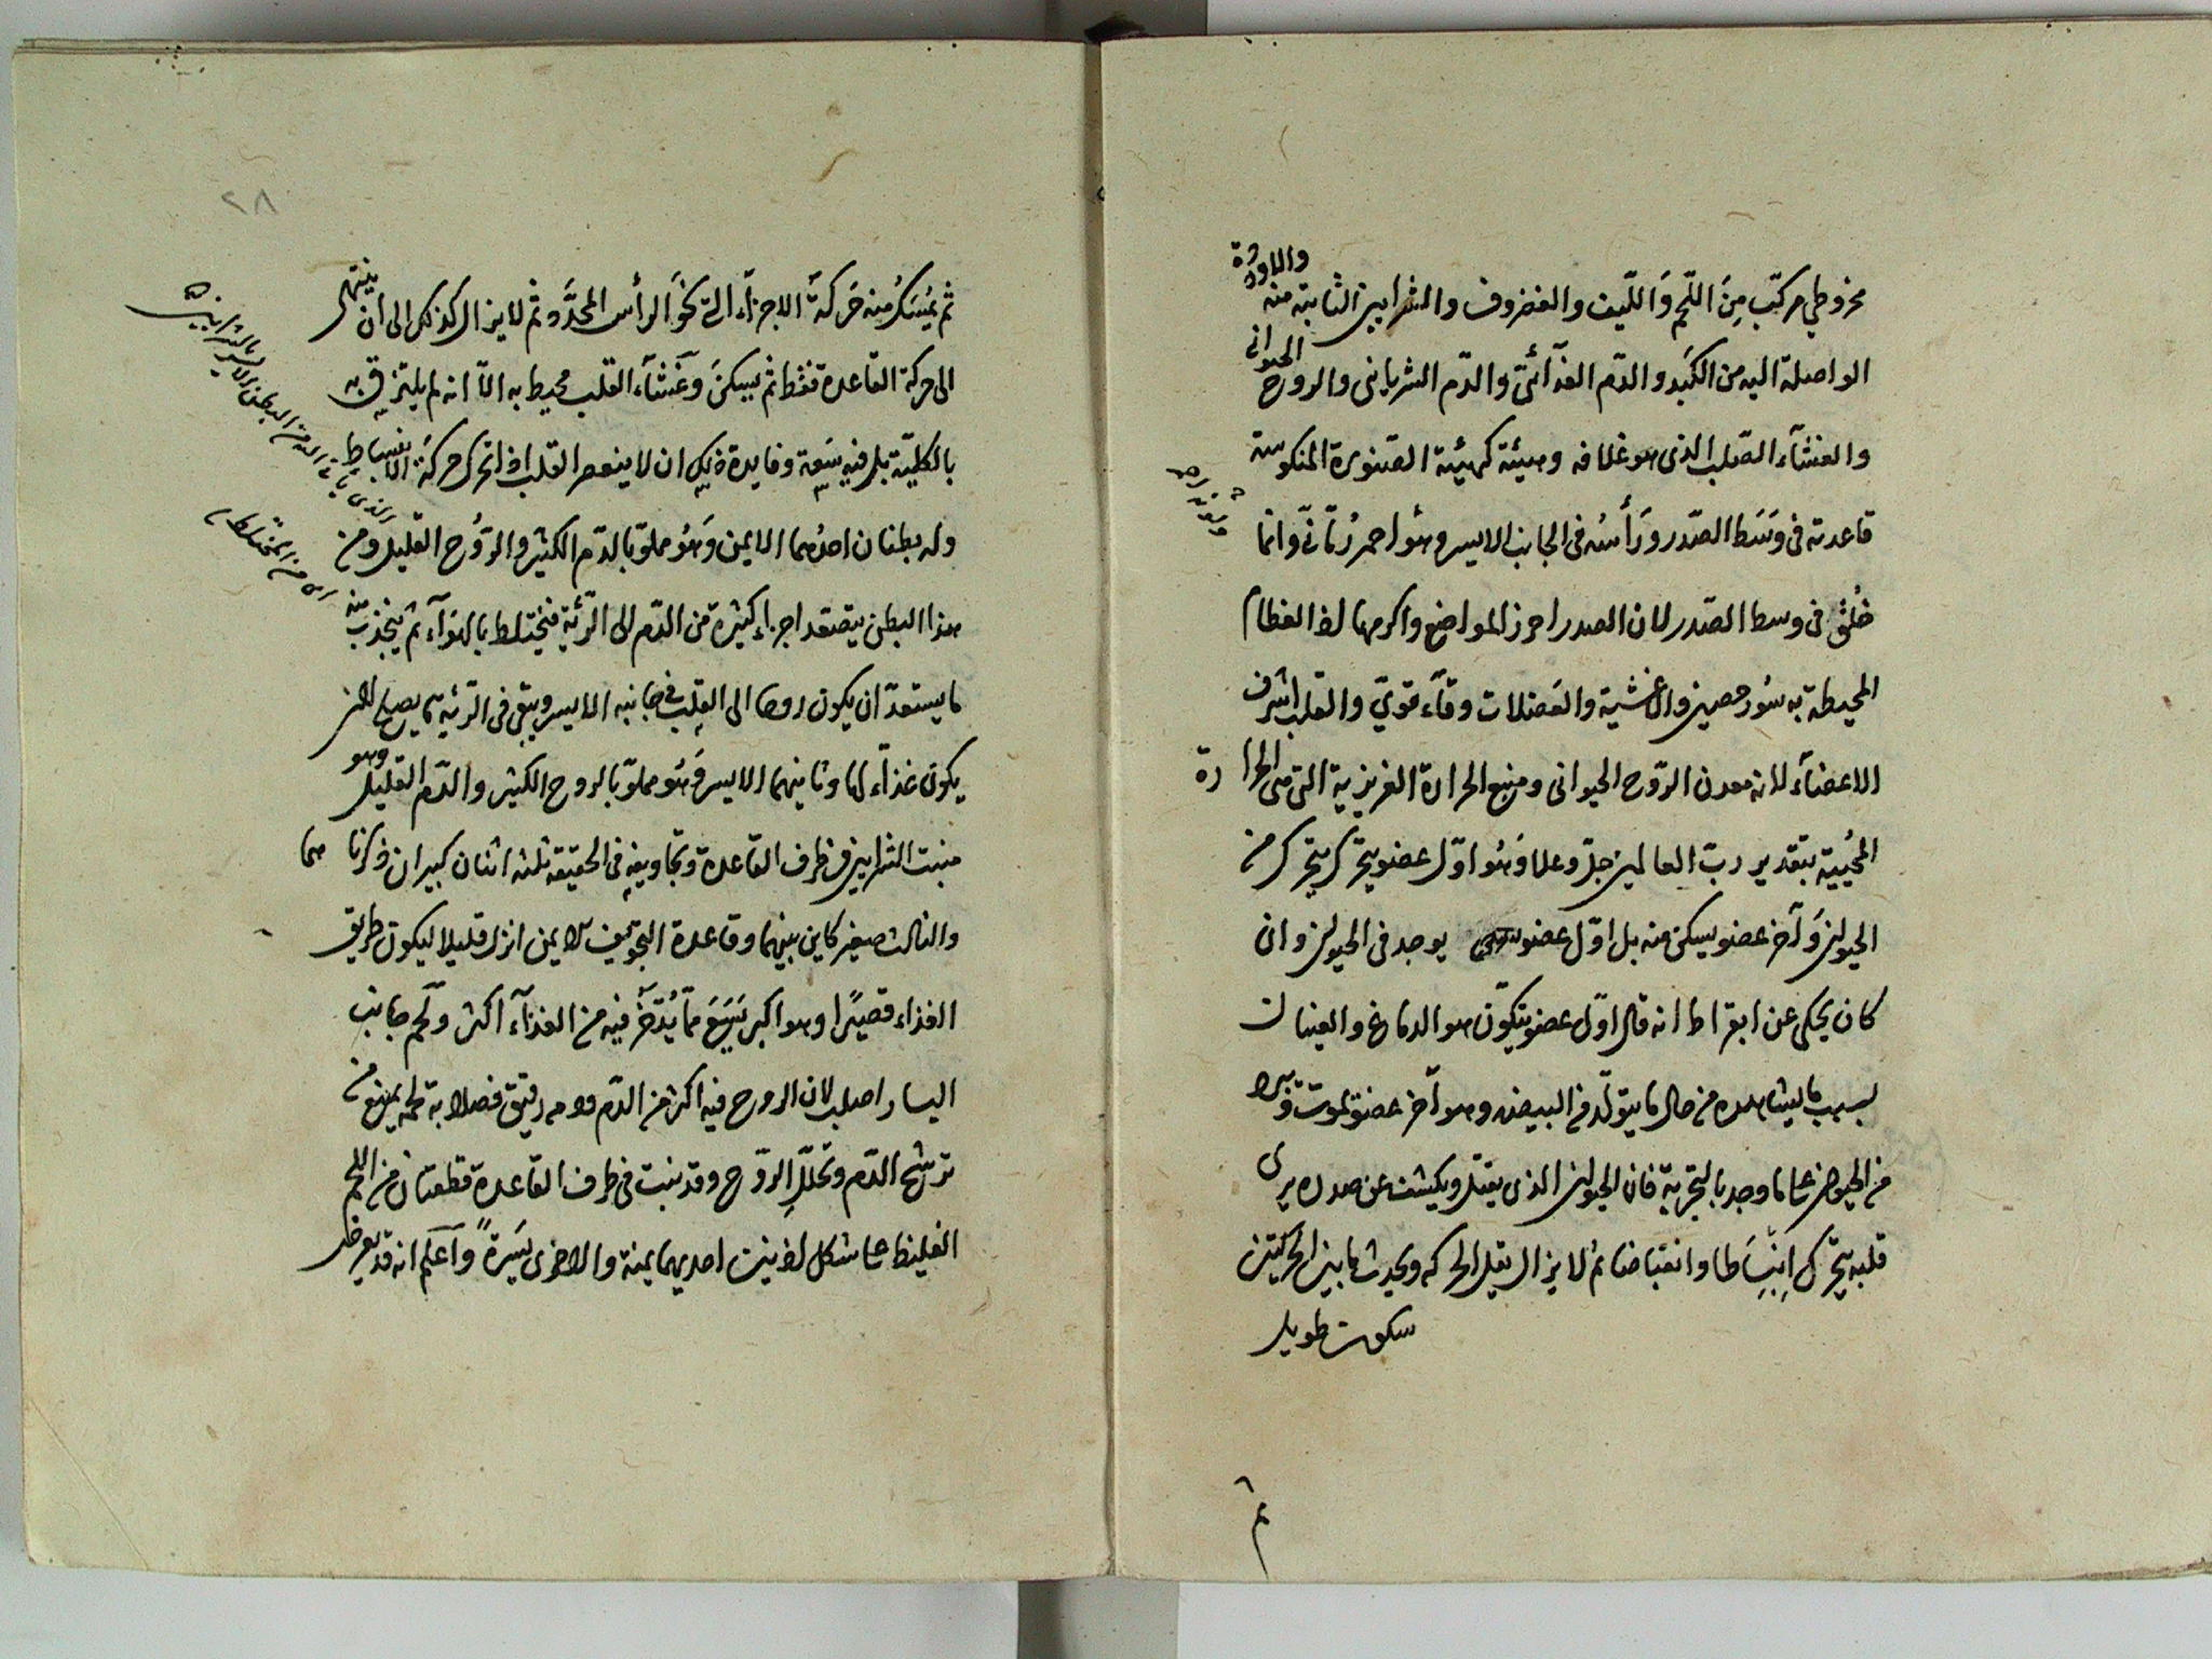 مخروطي مركّب مِنَ اللّحم وَاللّيف والغضروف والشرايين الثابتة منه والاوردة
الواصلة اليه من الكَبد والدّم الغذآئىّ والدّم الشريانى والروح الحيوانى
والغشآء الصّلب الذى هو غلافه وهيئة كهيئة الصّنوبرة المنكوسة
قاعدته فى وَسَط الصّدر ورَأسُه فى الجانب الايسر وهُو احمر رُمّانىّ وانما
خُلق فى وسط الصّدر لان الصدر احرز المواضع واكرمها اذ العظام
المحيطة به سُور حصين والاغشية والعَضلات وقآء قوىّ والقلب اشرف
الاعضآء لانه معدن الرّوح الحيوانى ومنبع الحرارة الغريزية التى هى الحرارة
المُحْيية بتقدير ربّ العالمين جلّ وعلا وَهُو اوّل عضو يتحرّك من
الحيوان وَآخر عضو يسكن منه بل اوّل عضو يوجد فى الحيوان وان
كان يحكى عن ابقراط انه قال اوّل عضو يتكوّن هو الدماغ والعينان
بسبب ما يشاهده من حال ما يتولّد فى البيض وهو آخر عضو يموت
من الحيوان على ما وجد بالتجربة فان الحيوان الذى يقتل ويكشف عن صدره يرى
قلبه يتحرّك اِنبِسَاطا وانقباضا ثم لا يزال يقل الحركه ويحدث ما بين الحركتين
سكون طويل
ثم
٢٨
ثم يُمسَك منه حَركة الاجزآء التى نَحوَ الرأس المحدّد ثم لا يزال كذلك الى ان ينتهى
الى حركة القاعدة فقَط ثم يسكن وَغشآء القلب محيط به الاّ انه لم يلتزق به
بالكلّية بل فيه سَعة وفايدة ذلك ان لا ينعصر القلب اذا تحرّك حركة الانبساط
وله بطنان احدُهما الايمن وَهُو مملوّ بالدّم الكثير والرّوُح القليل ومن
هذا البطن يتصعّد اجزاء كثيرة من الدّم الى الرّئة فتختلط بالهوَآء ثم ينجذب منه
ما يستعدّ ان يكون روحا الى القلب فى جانبه الايسر ويبقى فى الرّئة ما يصلح لان
يكون غذآء لها وثانيهما الايسر وَهُو مملوّ بالروح الكثير والدّم القليل وهو
منبت الشرايين فى طرف القاعدة وتجاويفه فى الحقيقة ثلثه اثنان كبيران ذكرناهما
والثالث صغير كاين بينهما وقاعدة التجويف الايمن انزل قليلا ليكون طريق
الغذاء قصيرًا وهو اكبر يَسَع مَا يُدّخر فيه من الغذآء اكثر ولحم جانب
اليسار اصلب لان الروح فيه اكثر من الدّم ودمه رقيق فصلابة لحمه يمنع من
ترشّح الدّم وتحلّل الرّوح وقد نبت فى طرف القاعدة قطعتان من اللحم
الغليظ على شكل اذنين احديهما يمنة والاخرى يَسَرةً وَاعلَم انه قد يعرض